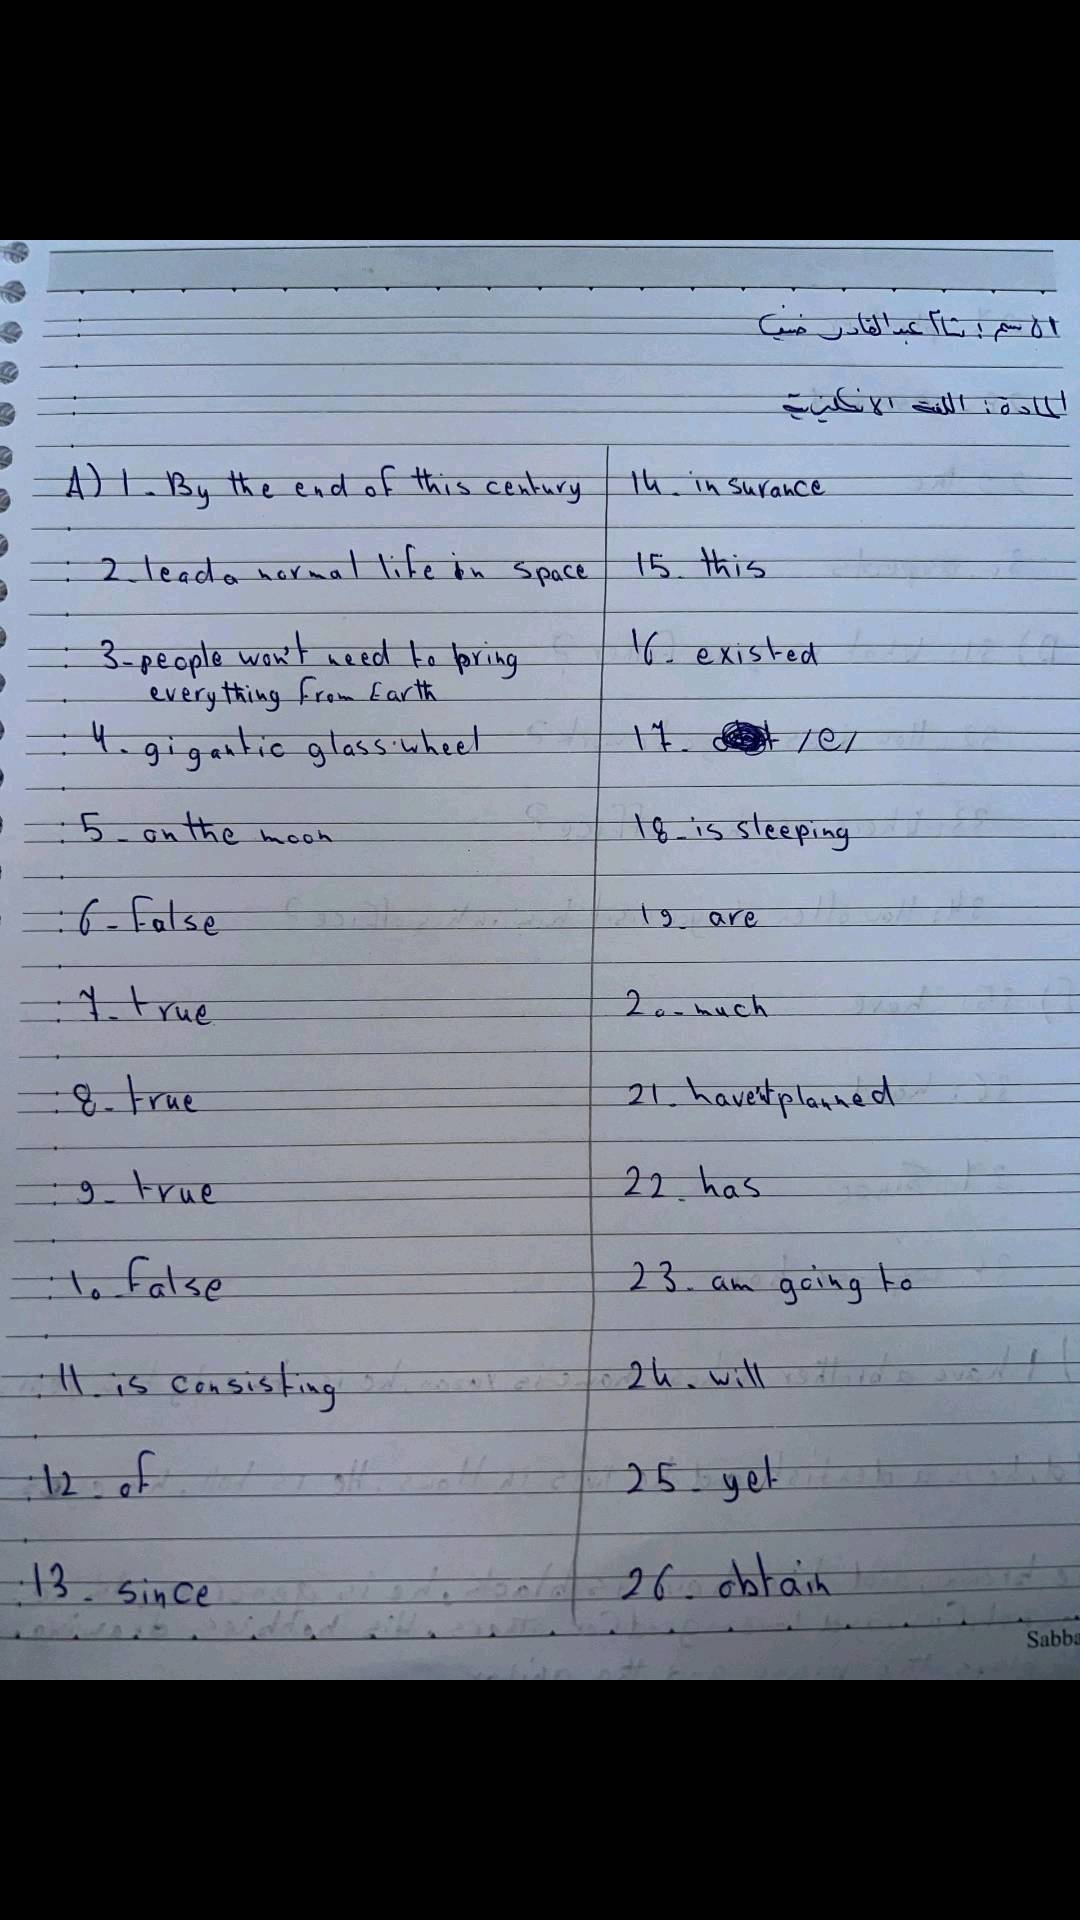 الاسم : عبدالقادر
المادة : اللغة الانكليزية
A) 1 - By the end of this century
2 - lead a normal life in space
3 - people won't need to bring
everything from Earth
4 - gigantic glass wheel
5 - on the moon
6 - False
7 - true
8 - true
9 - true
10 - False
11 - is consisting
12 - of
13 - since
14 - insurance
15 - this
16 - existed
17 - /e/
18 - is sleeping
19 - are
20 - much
21 - haven't planned
22 - has
23 - am going to
24 - will
25 - yet
26 - obtain
Sabba